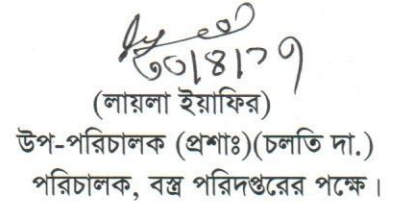 ৩০/৪/১৭
(লায়লা ইয়াফির)
উপ-পরিচালক (প্রশাঃ)(চলতি দা.)
পরিচালক, বস্ত্র পরিদপ্তরের পক্ষে।